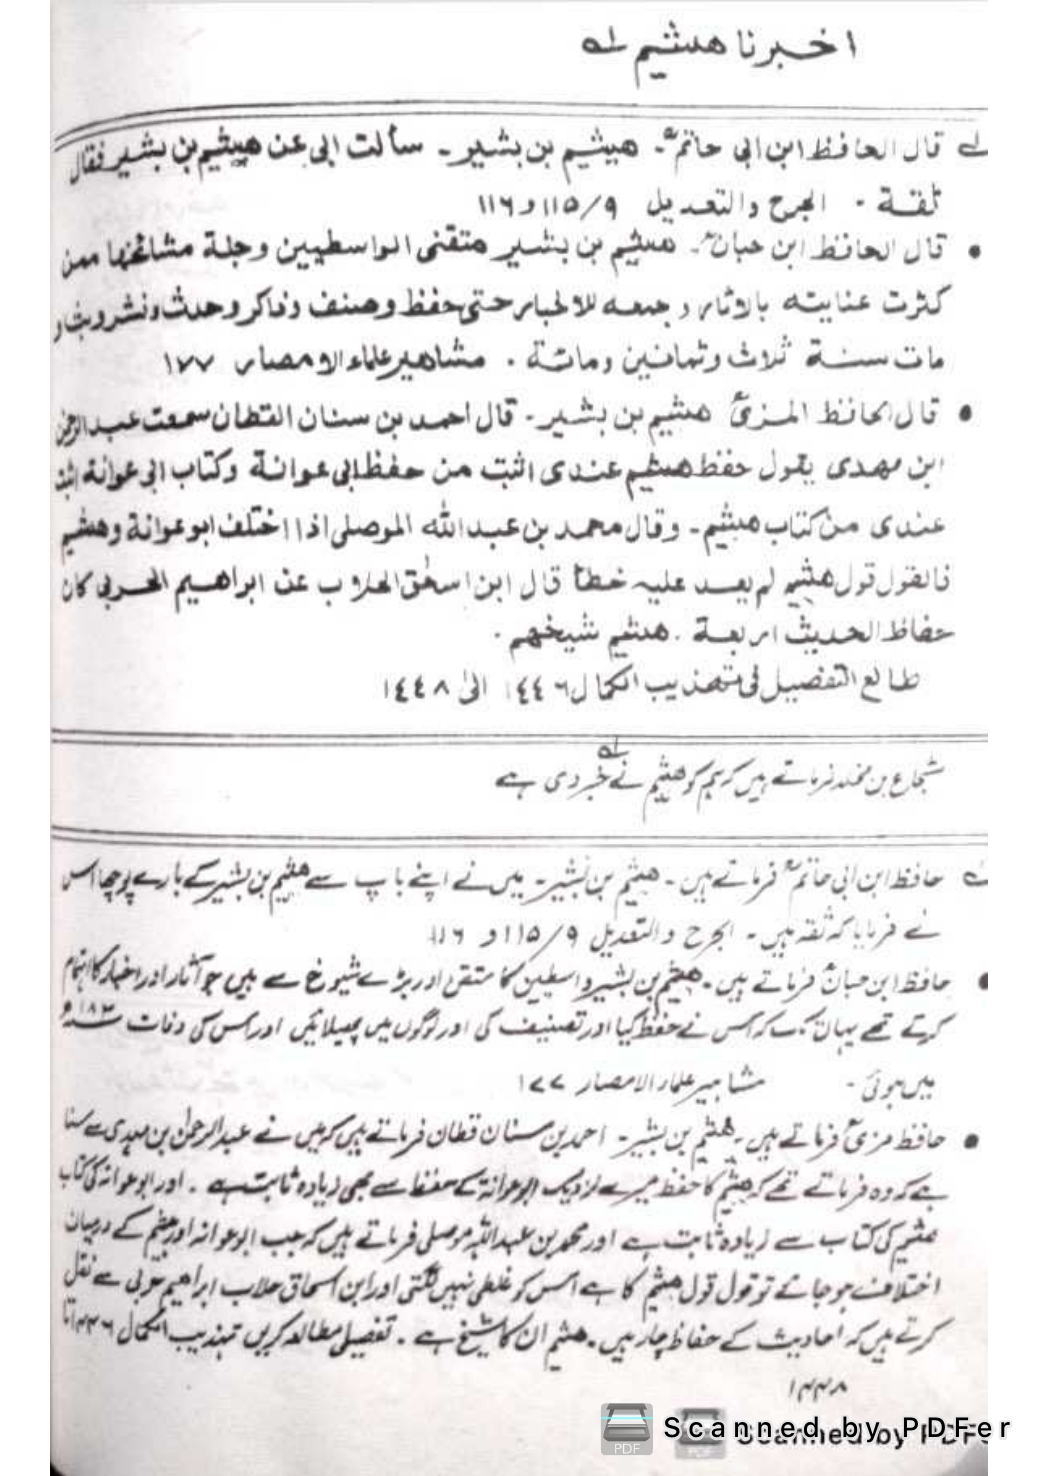 اخبرنا هشیم لے
لے قال الحافظ ابن ابی حاتمؒ۔ هیشم بن بشیر۔ سألت ابی عن هیشم بن بشیر فقال
ثقة ۔ الجرح والتعدیل ۱۱۵/۹ و ۱۱۶
• قال الحافظ ابن حبانؒ۔ هشیم بن بشیر متقنی الواسطیین وجلة مشائخها ممن
کثرت عنایته بالاثار وجمعه للاخبار حتی حفظ وصنف وذاکر وحدث ونشر وبث و
مات سنة ثلاث وثمانین ومائة ۔ مشاهیر علماء الامصار ۱۷۷
• قال الحافظ المزیؒ هشیم بن بشیر۔ قال احمد بن سنان القطان سمعت عبدالرحمٰن
ابن مهدی یقول حفظ هشیم عندی اثبت من حفظ ابی عوانة وکتاب ابی عوانة اثبت
عندی من کتاب هشیم۔ وقال محمد بن عبد الله الموصلی اذا اختلف ابو عوانة وهشیم
فالقول قول هشیم لم یعد علیه خطأ قال ابن اسحٰق الجلاب عن ابراهیم الحربی کان
حفاظ الحدیث اربعة ۔ هشیم شیخهم ۔
طالع التفصیل فی تهذیب الکمال ۱٤٤٦ الیٰ ۱٤٤۸
شجاع بن مخلد فرماتے ہیں کہ ہم کو ھشیم لے نے خبر دی ہے
لے حافظ ابن ابی حاتمؒ فرماتے ہیں۔ ھشیم بن بشیر۔ میں نے اپنے باپ سے ھشیم بن بشیر کے بارے پوچھا اس
نے فرمایا کہ ثقہ ہیں۔ الجرح والتعدیل ۱۱۵/۹ و ۱۱۶
• حافظ ابن حبانؒ فرماتے ہیں۔ ھشیم بن بشیر واسطین کا متقن اور بڑے شیوخ سے ہیں جو آثار اور اخبار کا اہتمام
کرتے تھے یہاں تک کہ اس نے حفظ کیا اور تصنیف کی اور لوگوں میں پھیلائیں اور اس کی وفات ۱۸۳ھ
میں ہوئی۔ مشاہیر علماء الامصار ۱۷۷
• حافظ مزیؒ فرماتے ہیں۔ ھشیم بن بشیر۔ احمد بن سنان قطان فرماتے ہیں کہ میں نے عبدالرحمٰن بن مہدی سے سنا
ہے کہ وہ فرماتے تھے کہ ھشیم کا حفظ میرے نزدیک ابو عوانة کے حفظ سے بھی زیادہ ثابت ہے ۔ اور ابو عوانہ کی کتاب
ھشیم کی کتاب سے زیادہ ثابت ہے اور محمد بن عبداللہ موصلی فرماتے ہیں کہ جب ابو عوانہ اور ھشیم کے درمیان
اختلاف ہو جائے تو قول قول ھشیم کا ہے اس کو غلطی نہیں لگتی اور ابن اسحاق جلاب ابراھیم حربی سے نقل
کرتے ہیں کہ احادیث کے حفاظ چار ہیں۔ ھشیم ان کا شیخ ہے ۔ تفصیل مطالعہ کریں تہذیب الکمال ۱۴۴۶ تا
۱۴۴۸
Scanned by PDFer
Scanned by PDFer